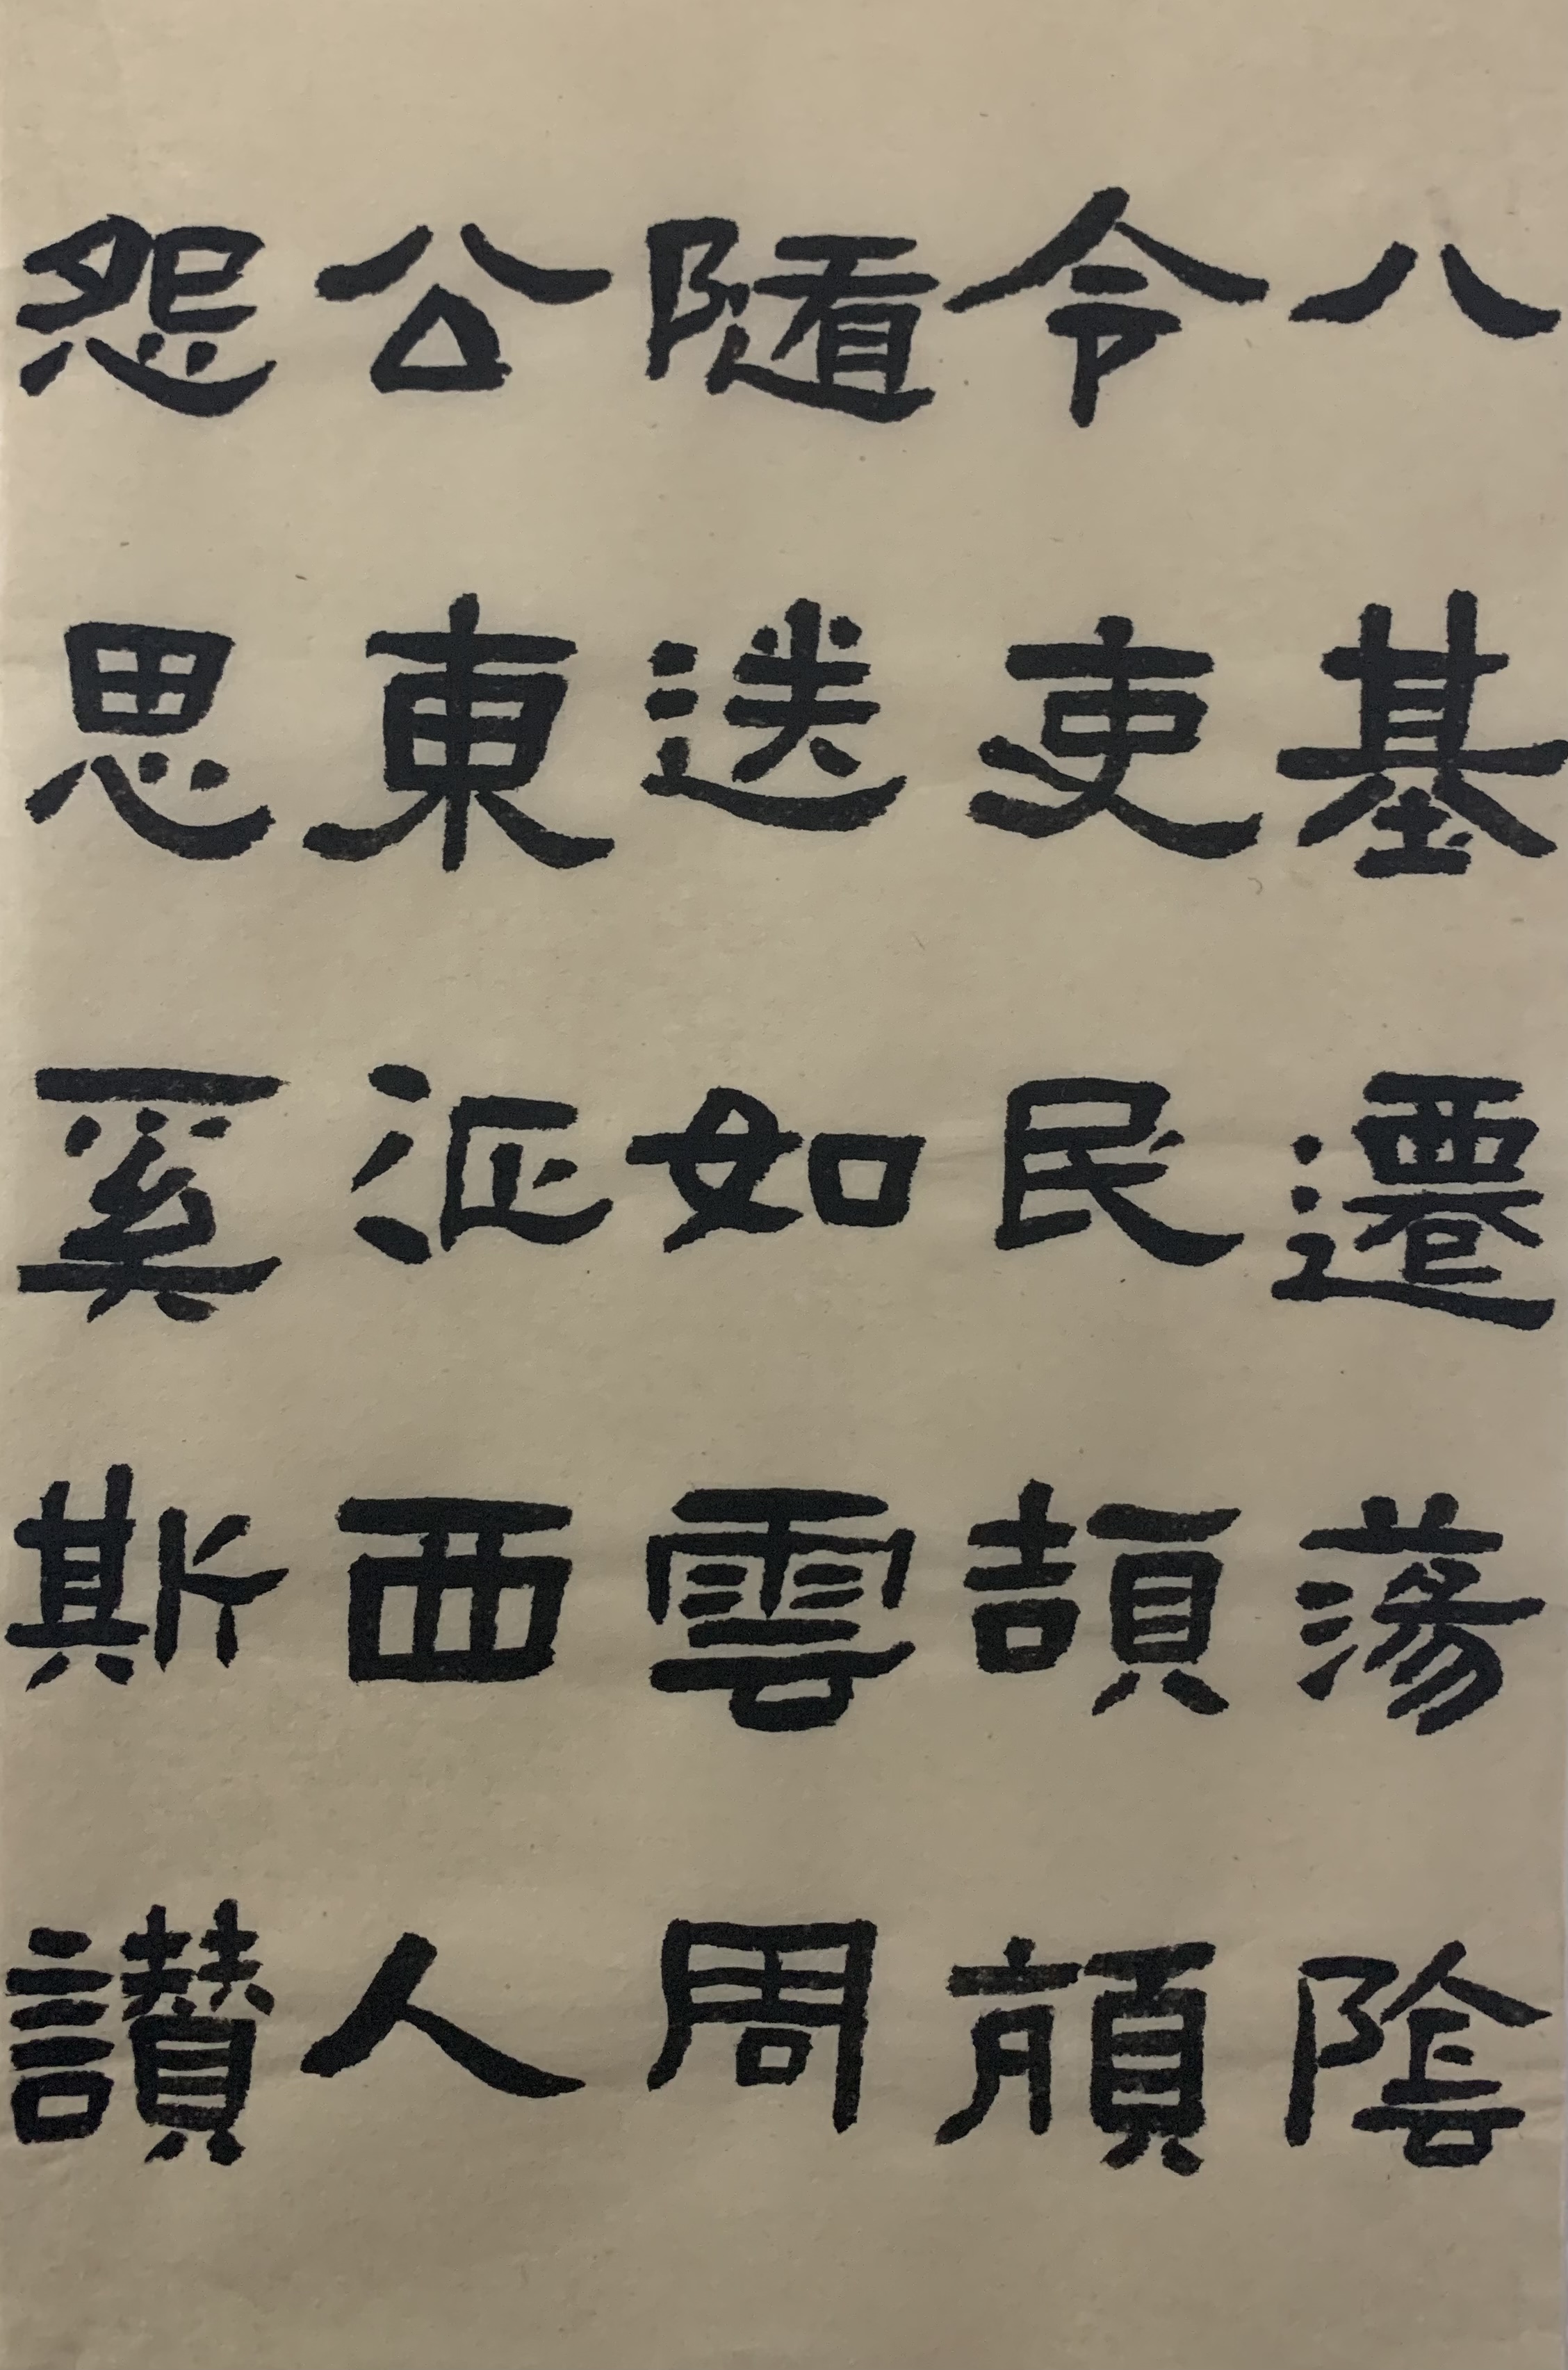 八基遷蕩陰
令吏民頡頏
隨送如雲周
公東征西人
怨思奚斯讚